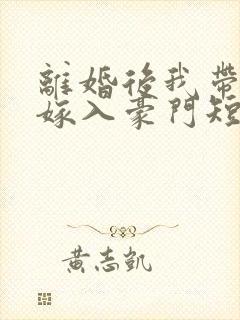 離婚後我帶
嫁入豪門短
黃志凱